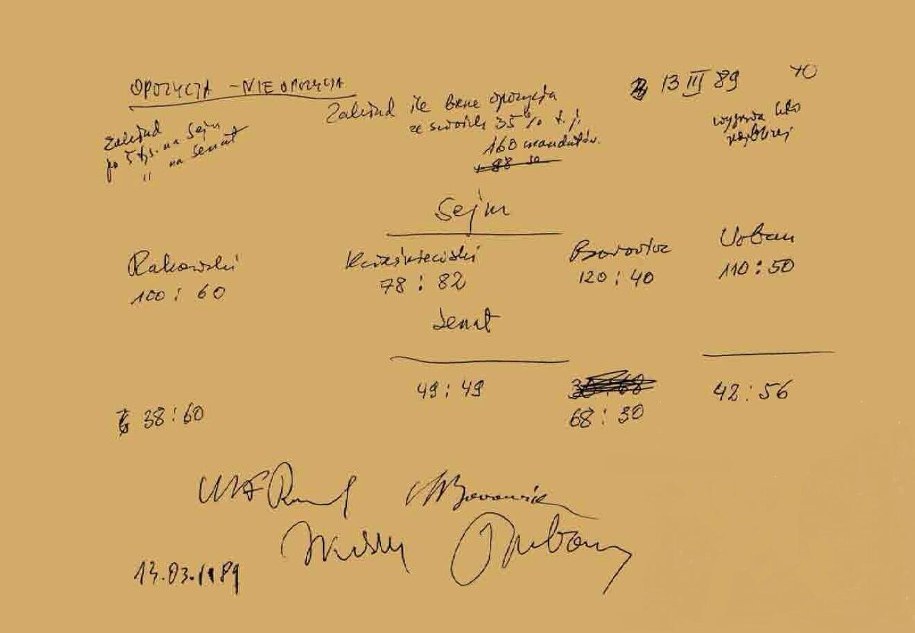 OPOZYCJA – NIE OPOZYCJA
13 III 89
Zakład
po 5 tys. na Sejm
" na Senat
Zakład ile bene opozycja
ze swoich 35% t. j.
160 mandatów.
wygrywa kto
najbliżej
Sejm
Rakowski
100 : 60
78 : 82
Borowicz
120 : 40
Urban
110 : 50
Senat
38 : 60
49 : 49
68 : 30
42 : 56
13.03.1989